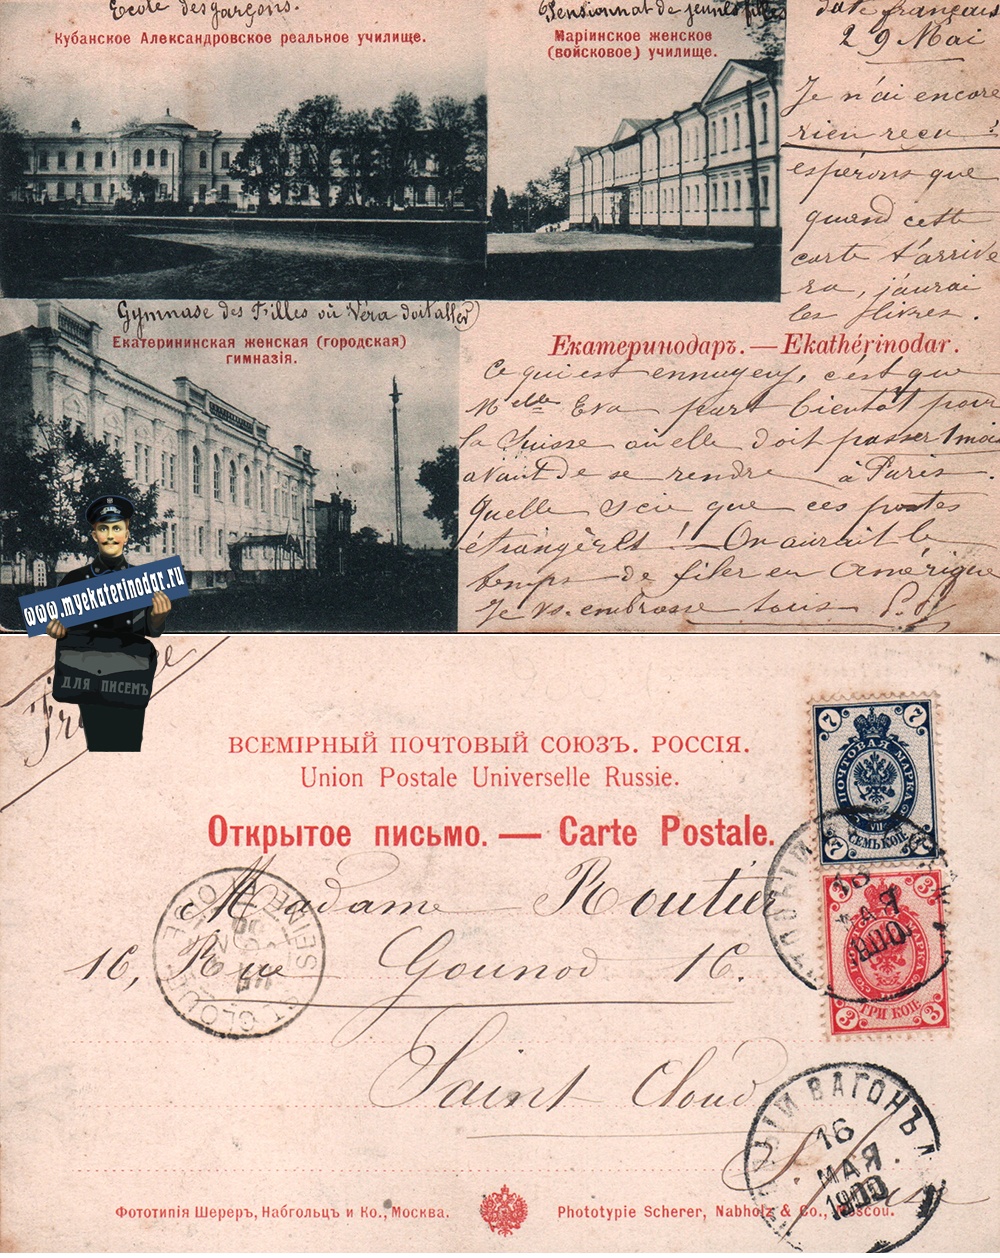 Ecole des garçons.
Кубанское Александровское реальное училище.
Pensionnat de jeunes filles
Маріинское женское
(войсковое) училище.
date français
29 Mai
Je n'ai encore
rien reçu!
espérons que
quand cette
carte t'arrive
ra, j'aurai
les livres.
Gymnase des Filles où Véra doit aller)
Екатерининская женская (городская)
гимназія.
Екатеринодаръ. — Ekathérinodar.
Ce qui est ennuyeux, c'est que
Melle Eva part bientôt pour
la Suisse où elle doit passer 1 mois
avant de se rendre à Paris.
Quelle scie que ces postes
étrangères! On aurait le
temps de filer en Amérique
Je vs. embrasse tous
www.myekaterinodar.ru
ДЛЯ ПИСЕМЪ
ВСЕМІРНЫЙ ПОЧТОВЫЙ СОЮЗЪ. РОССІЯ.
Union Postale Universelle Russie.
Открытое письмо. — Carte Postale.
7 7
ПОЧТОВАЯ МАРКА
VII
СЕМЬ КОП.
7
3 3
МАРКА
ТРИ КОП.
3 3
Madame Routier
16, Rue Gounod 16.
Saint Cloud
ST CLOUD
SEINE ET OISE
ВАГОНЪ
16
МАЯ
1900
Фототипія Шереръ, Набгольцъ и Ко., Москва.
Phototypie Scherer, Nabholz & Co., Moscou.